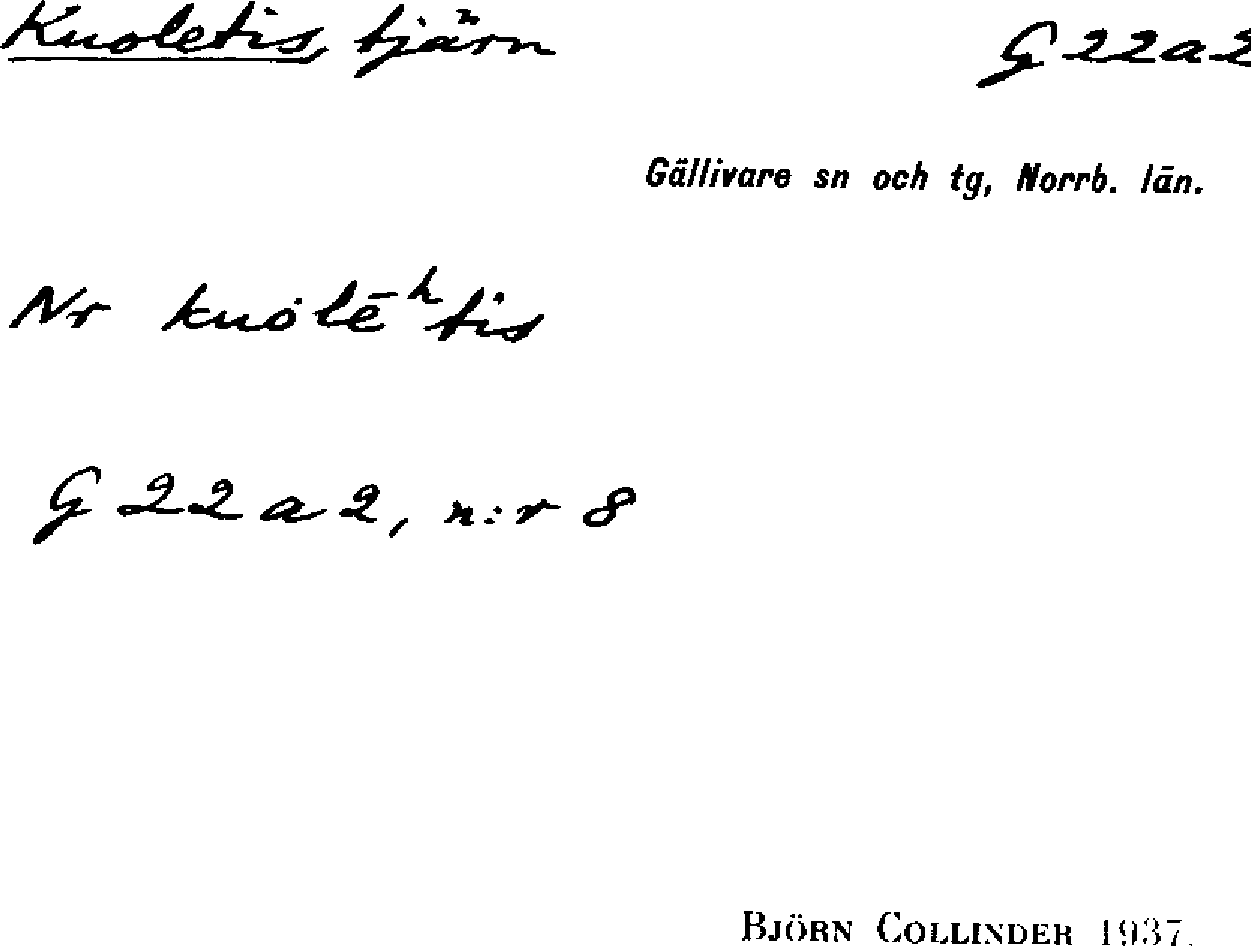 Kuoletis, tjärn G 22a2
Gällivare sn och tg, Norrb. län.
Nr kuȯlēʰtis
G 22 a 2, n:r 8
BJÖRN COLLINDER 1937.